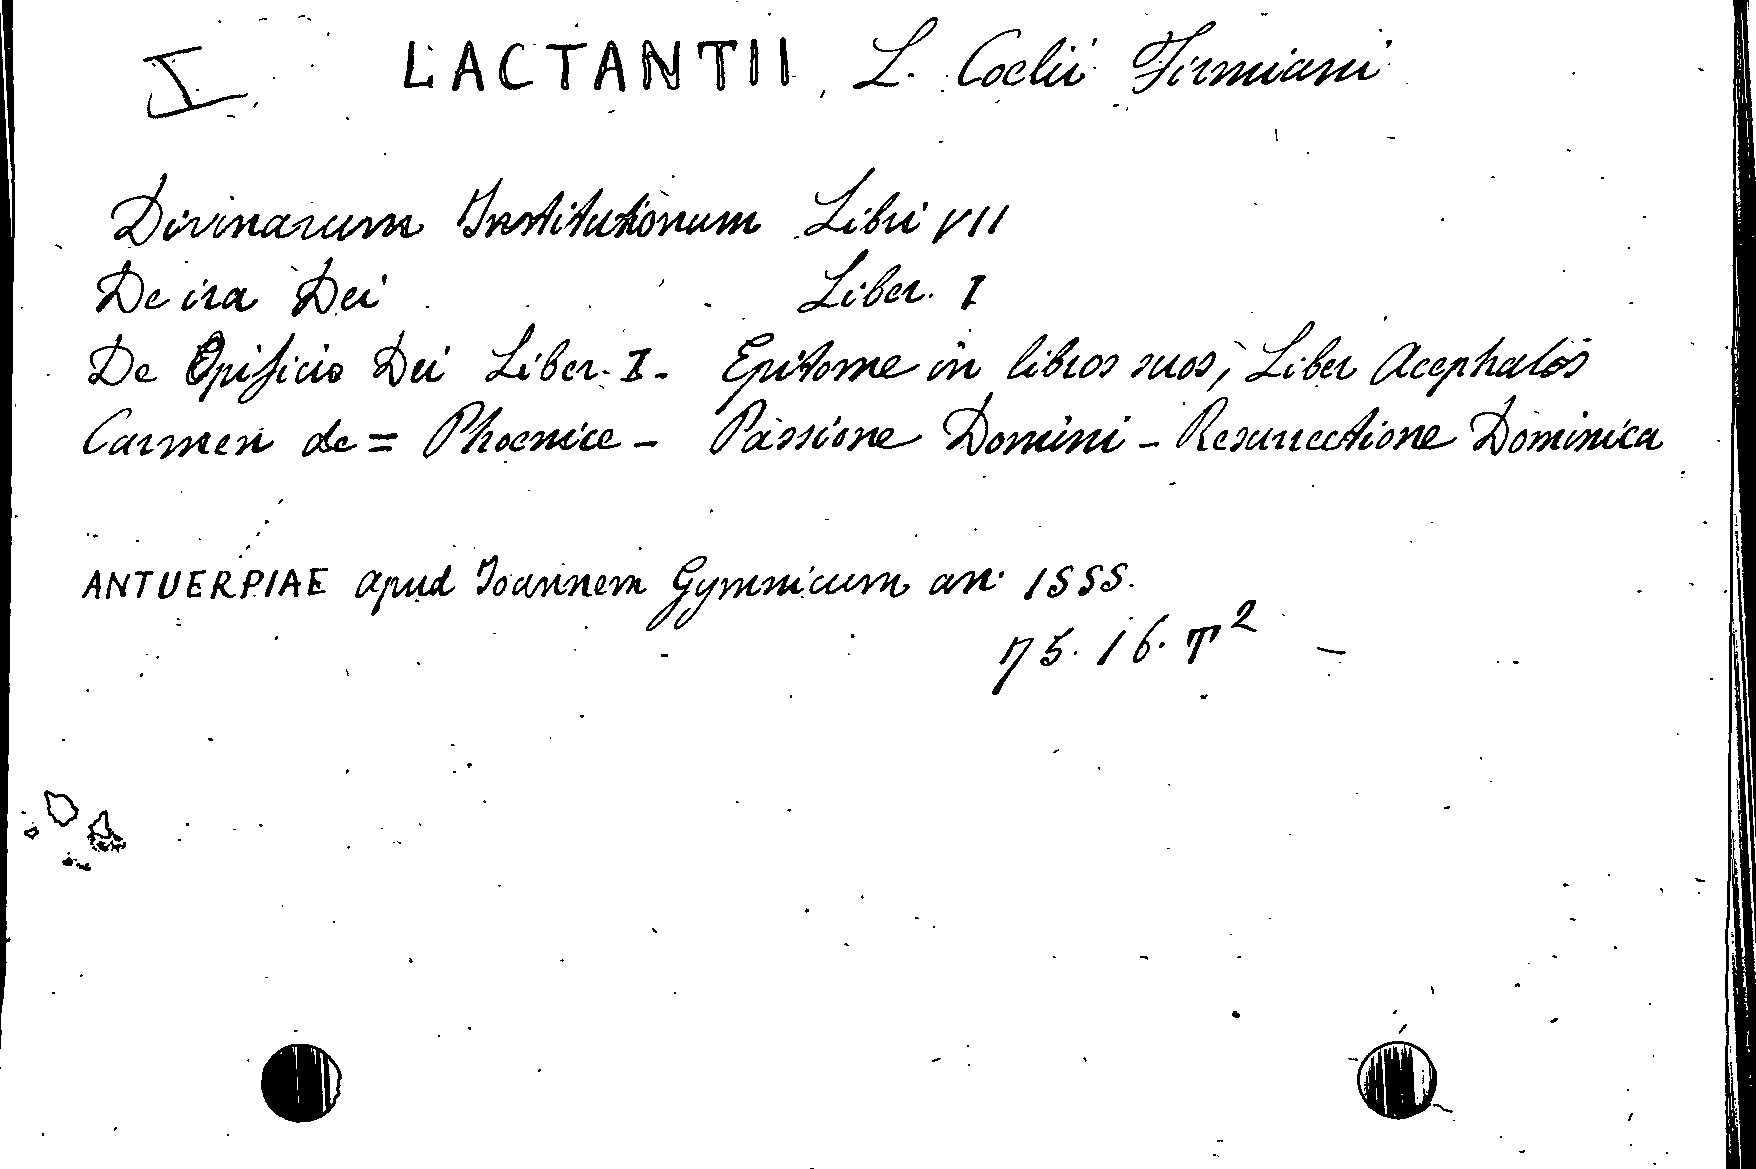 I LACTANTII, L. Coelii Firmiani
Divinarum Institutionum Libri VII
De ira Dei Liber. I
De Opificio Dei Liber. I - Epitome in libros suos, Liber Acephalos
Carmen de = Phoenice - Passione Domini - Resurrectione Dominica
ANTUERPIAE apud Ioannem Gymnicum an. 1555.
75. 16. T²